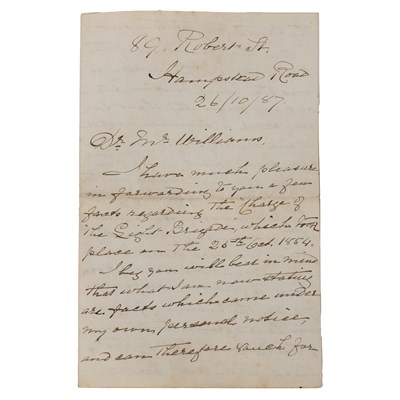 89. Robert St.
Hampstead Road
26/10/87
Dr. Mr. Williams,
I have much pleasure
in forwarding to you a few
facts regarding the "Charge of
The Light Brigade, which took
place on the 25th Oct. 1854.
I beg you will bear in mind
that what I am now stating
are facts which came under
my own personal notice,
and can therefore vouch for